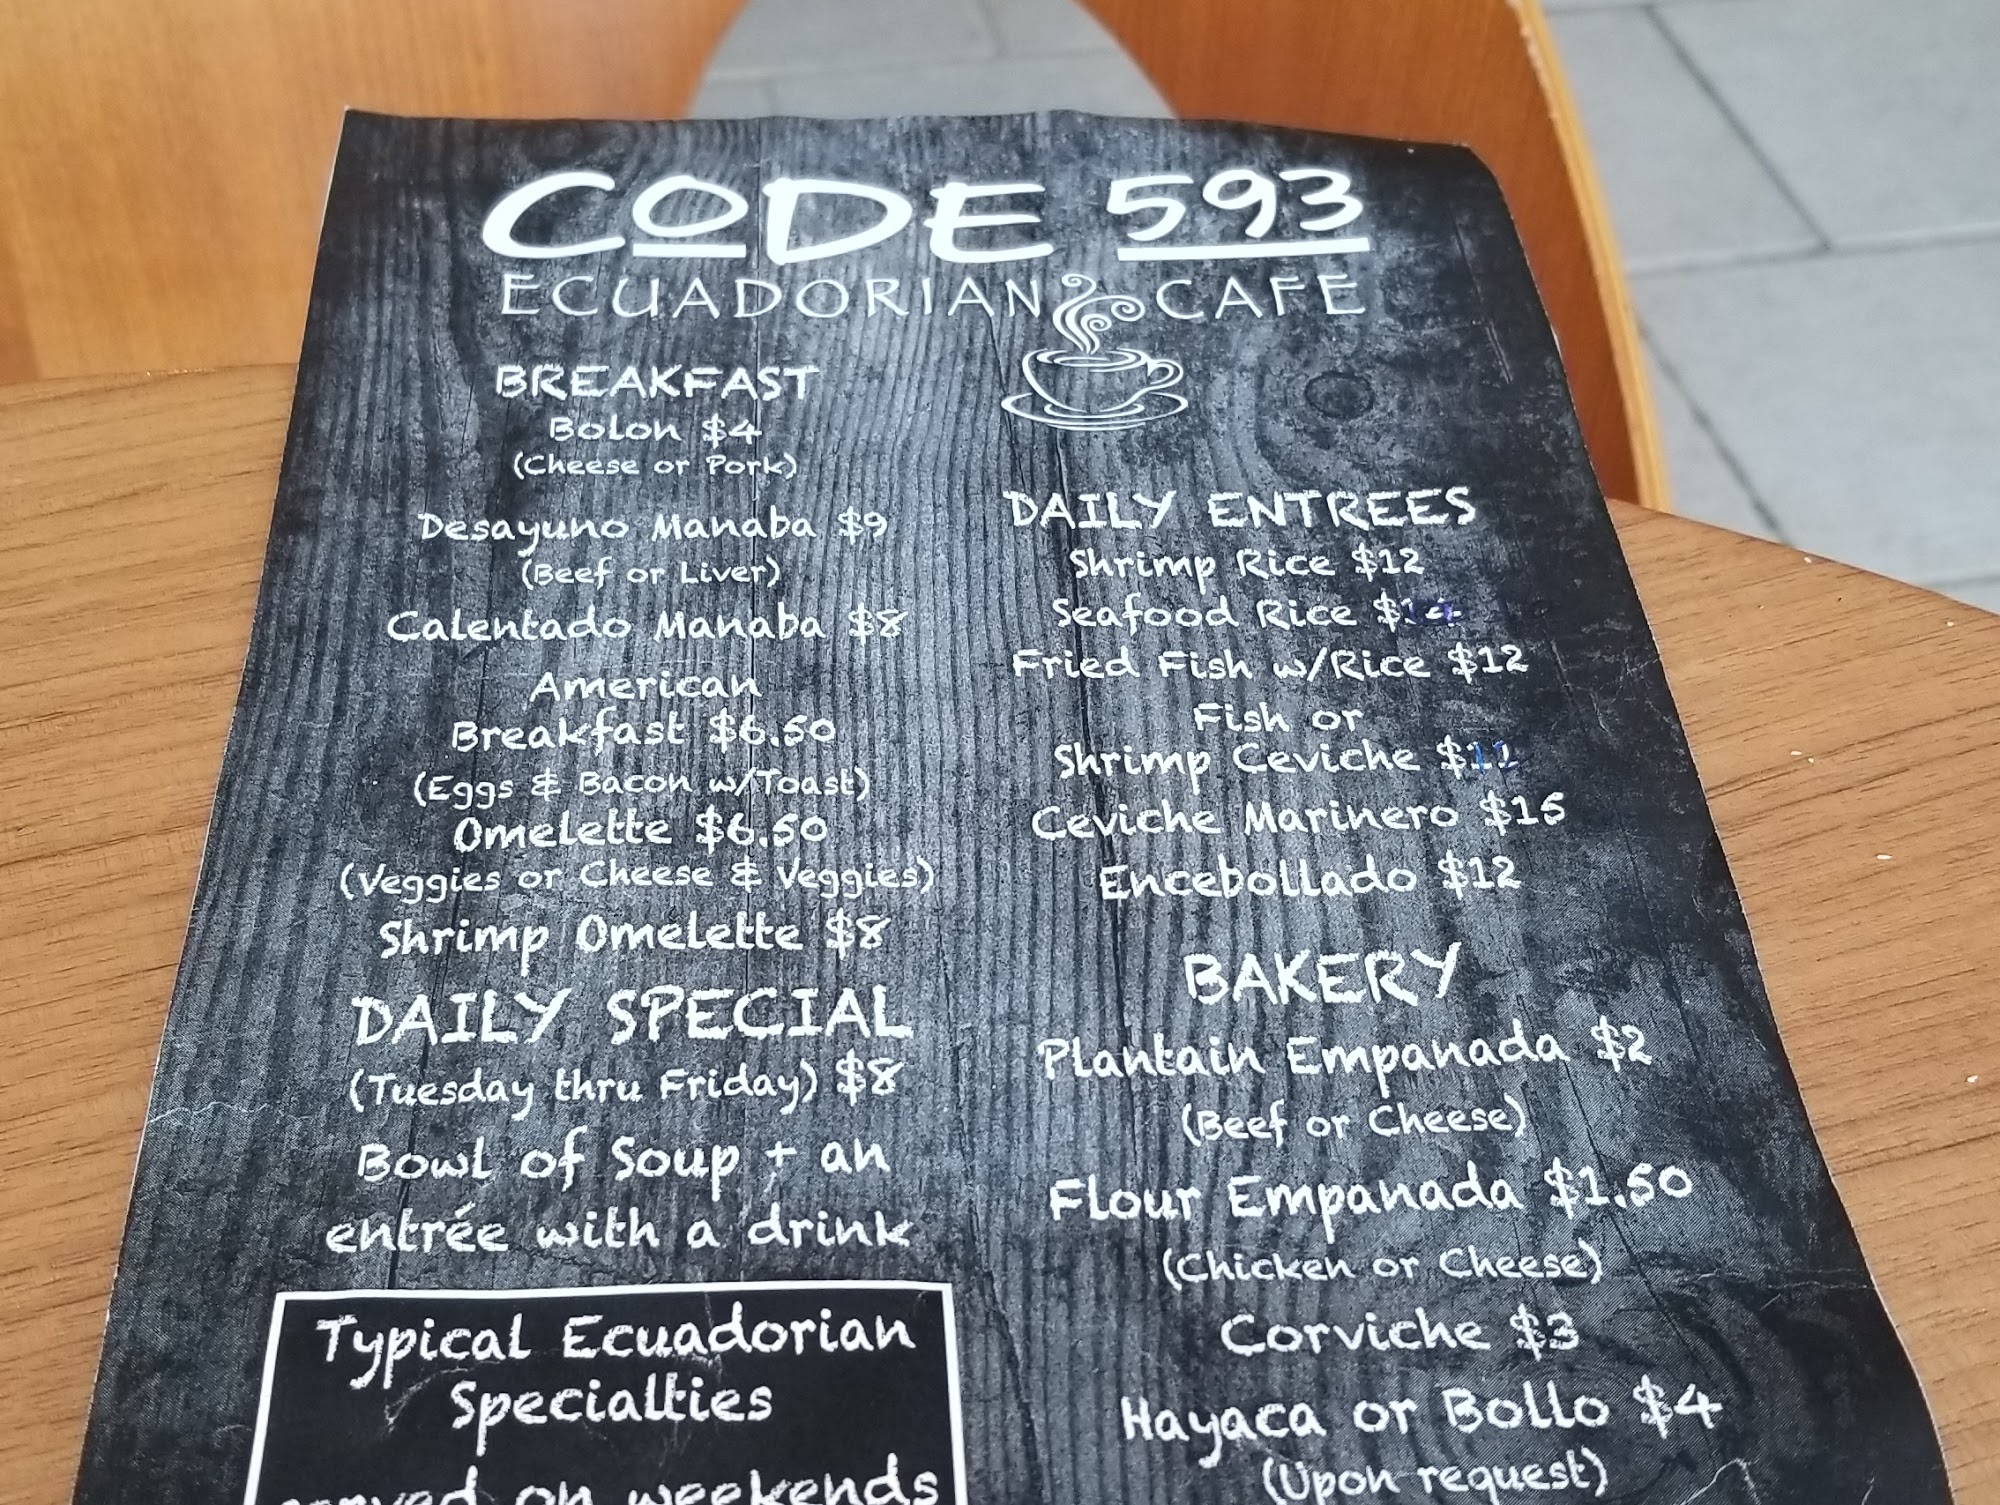 CODE 593
ECUADORIAN CAFE
BREAKFAST
Bolon $4
(Cheese or Pork)
Desayuno Manaba $9
(Beef or Liver)
Calentado Manaba $8
American
Breakfast $6.50
(Eggs & Bacon w/Toast)
Omelette $6.50
(Veggies or Cheese & Veggies)
Shrimp Omelette $8
DAILY SPECIAL
(Tuesday thru Friday) $8
Bowl of Soup + an
entrée with a drink
Typical Ecuadorian
Specialties
served on weekends
DAILY ENTREES
Shrimp Rice $12
Seafood Rice
Fried Fish w/Rice $12
Fish or
Shrimp Ceviche
Ceviche Marinero $15
Encebollado $12
BAKERY
Plantain Empanada $2
(Beef or Cheese)
Flour Empanada $1.50
(Chicken or Cheese)
Corviche $3
Hayaca or Bollo $4
(Upon request)